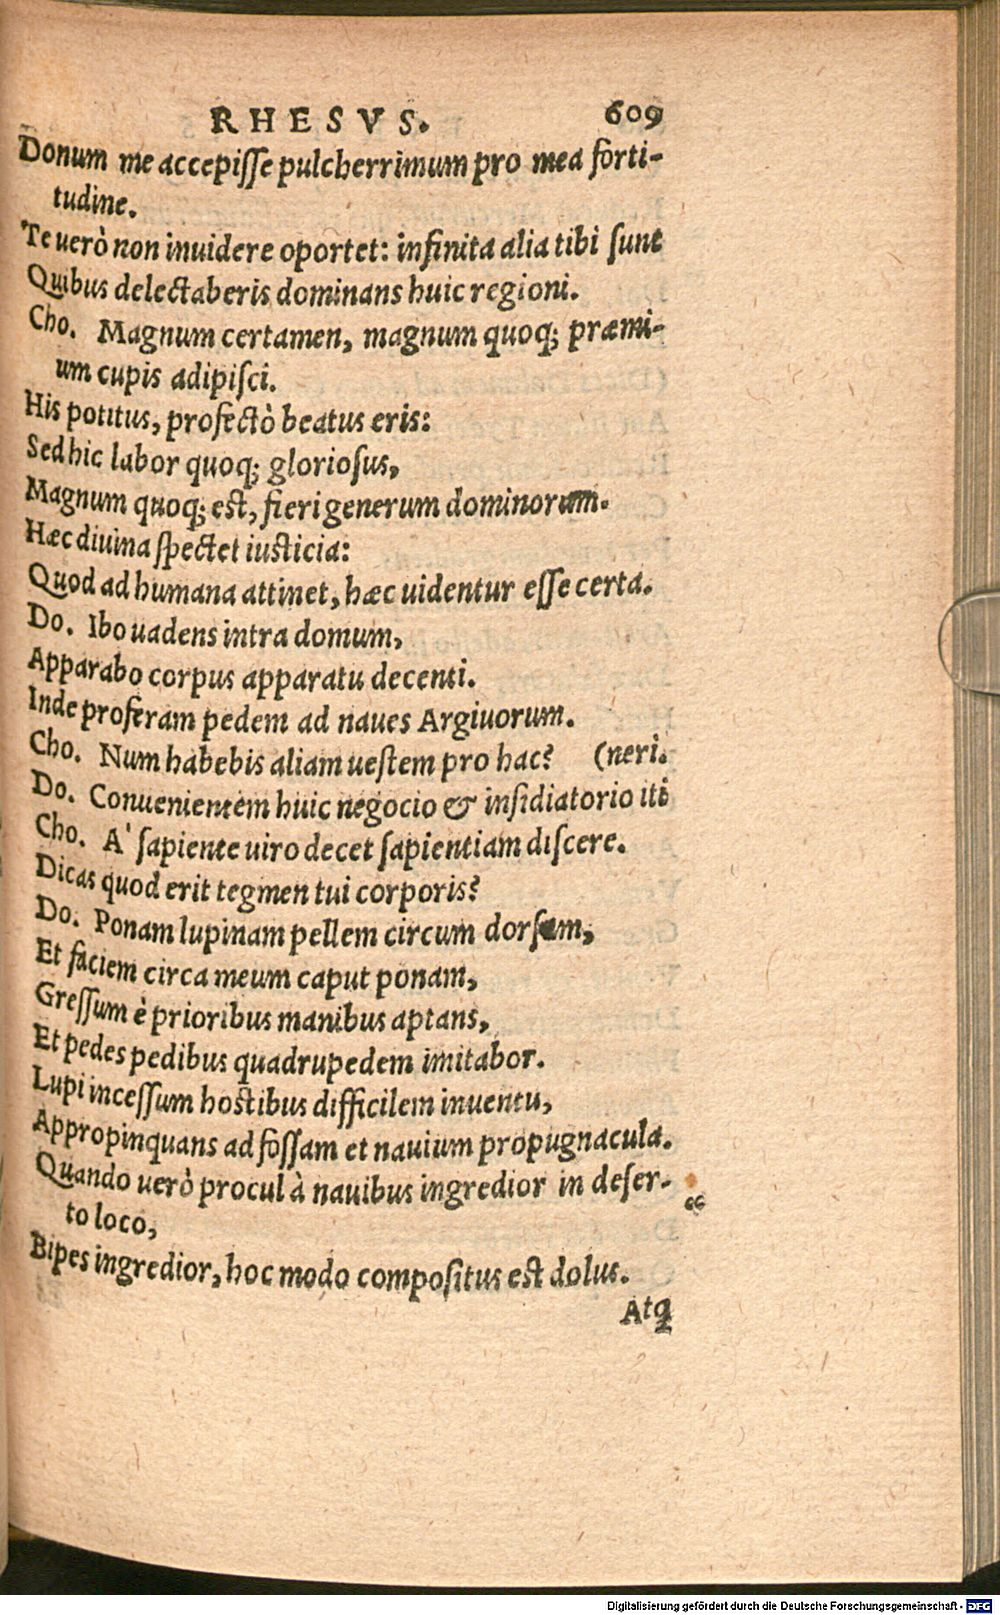 RHESVS. 609
Donum me accepisse pulcherrimum pro mea forti-
tudine.
Te uerò non inuidere oportet: infinita alia tibi sunt
Quibus delectaberis dominans huic regioni.
Cho. Magnum certamen, magnum quoq; præmi-
um cupis adipisci.
His potitus, profectò beatus eris:
Sed hic labor quoq; gloriosus,
Magnum quoq; est, fieri generum dominorum.
Hæc diuina spectet iusticia:
Quod ad humana attinet, hæc uidentur esse certa.
Do. Ibo uadens intra domum,
Apparabo corpus apparatu decenti.
Inde proferam pedem ad naues Argiuorum.
Cho. Num habebis aliam uestem pro hac? (neri.
Do. Conuenientem huic negocio & insidiatorio iti
Cho. A' sapiente uiro decet sapientiam discere.
Dicas quod erit tegmen tui corporis?
Do. Ponam lupinam pellem circum dorsum,
Et faciem circa meum caput ponam,
Gressum è prioribus manibus aptans,
Et pedes pedibus quadrupedem imitabor.
Lupi incessum hostibus difficilem inuentu,
Appropinquans ad fossam et nauium propugnacula.
Quando uerò procul à nauibus ingredior in deser-
to loco,
Bipes ingredior, hoc modo compositus est dolus.
Atq
Digitalisierung gefördert durch die Deutsche Forschungsgemeinschaft - DFG